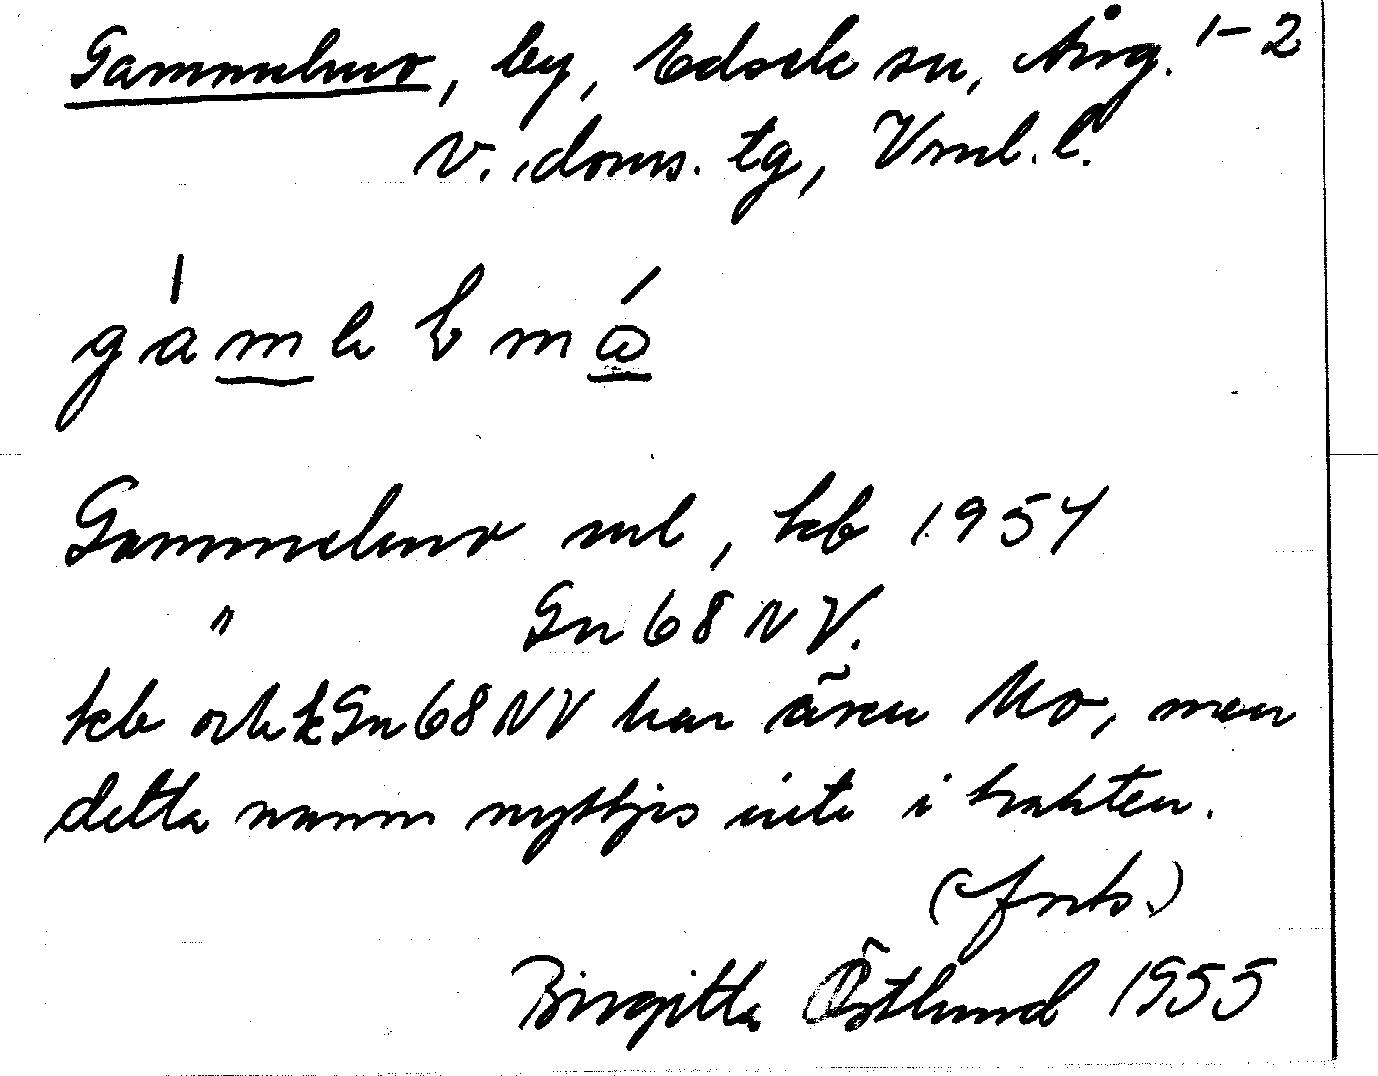 Gammelmo, by, Edsele sn, Ång. 1-2
v. doms. tg, l.
Gammelmo kb 1954
" Gn 68 NV.
kb och kGn68NV har även Mo, men
detta namn nyttjas inte i trakten.
Birgitta Östlund 1955